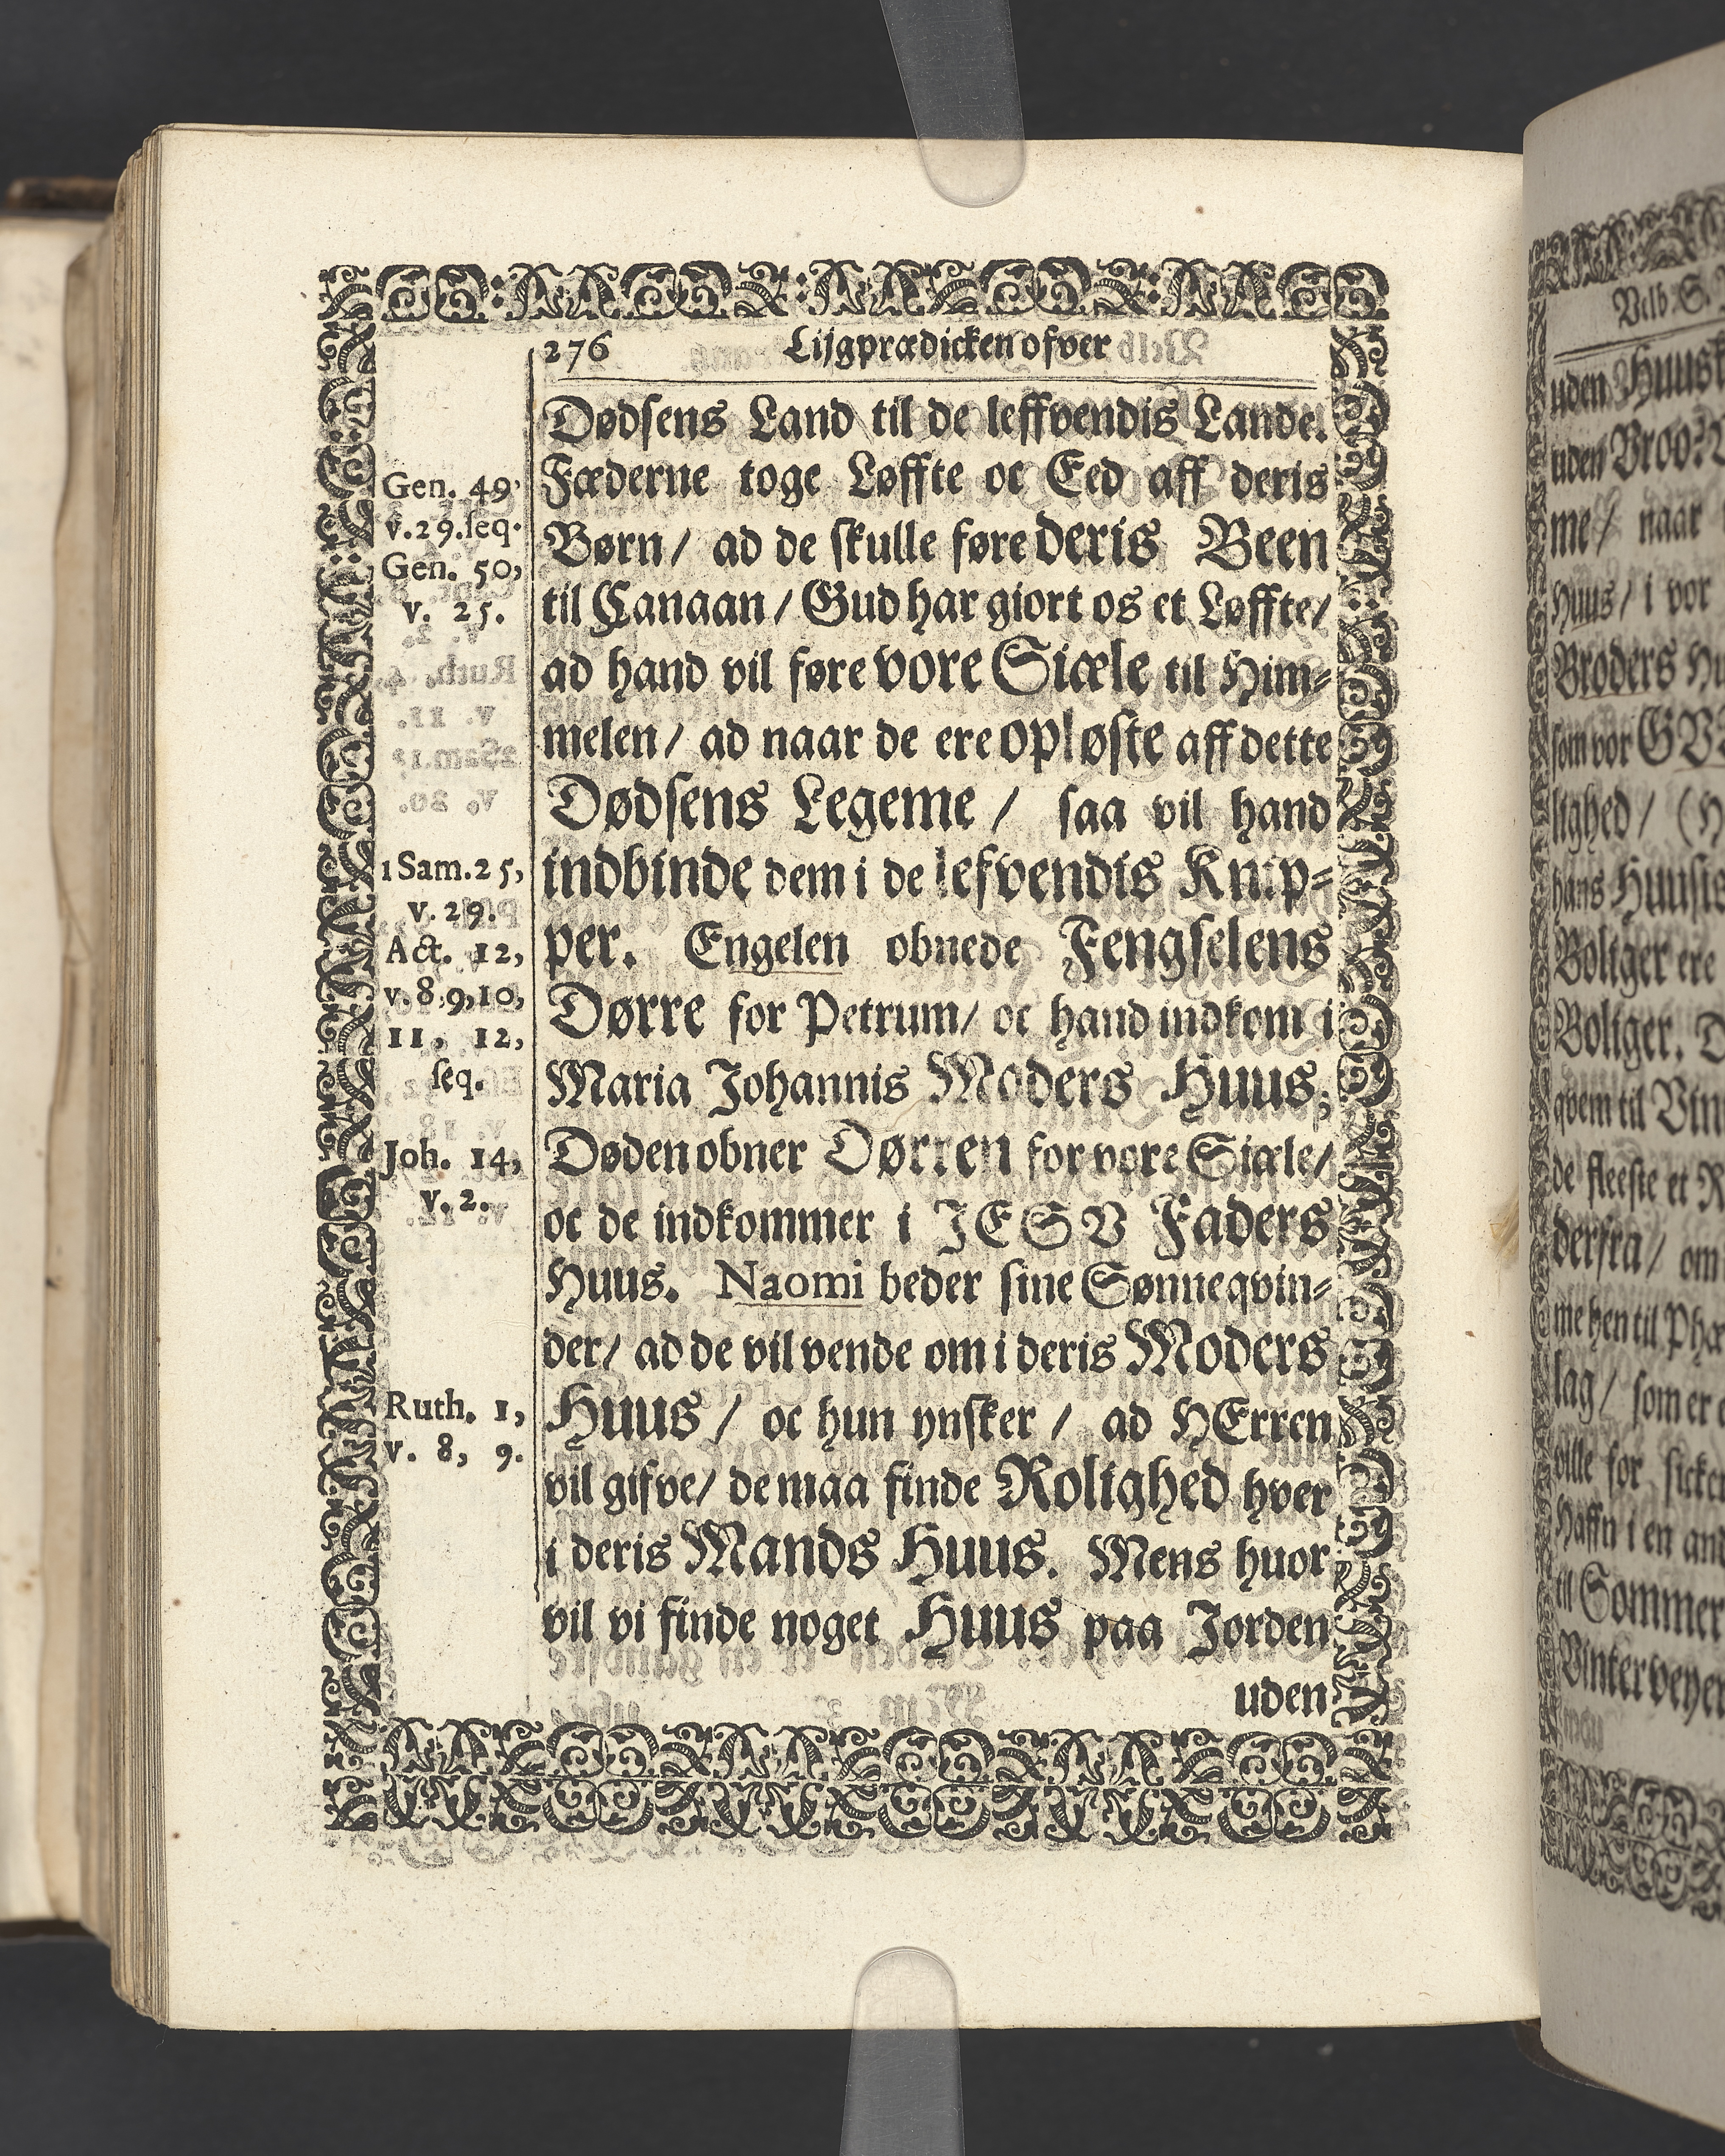 276 Lijgprædicken ofver
Dødsens Land til de leffvendis Lande.
Fæderne toge Løffte oc Eed aff deris
Børn/ ad de skulle føre deris Been
til Canaan/ Gud har giort os et Løffte/
ad hand vil føre vore Siæle til Him-
melen/ ad naar de ere opløste aff dette
Dødsens Legeme/ saa vil hand
indbinde dem i de lefvendis Knip-
per. Engelen obnede Fengselens
Dørre for Petrum/ oc hand indkom i
Maria Johannis Moders Huus;
Døden obner Dørren for vore Siæle/
oc de indkommer i JESV Faders
Huus. Naomi beder sine Sønneqvin-
der/ ad de vil vende om i deris Moders
Huus/ oc hun ynsker/ ad HErren
vil gifve/ de maa finde Rolighed hver
i deris Mands Huus. Mens huor
vil vi finde noget Huus paa Jorden
uden
Gen. 49,
v. 29. seq.
Gen. 50,
v. 25.
1 Sam. 25,
v. 29.
Act. 12,
v. 8,9,10,
11. 12,
seq.
Joh. 14,
v. 2.
Ruth. 1,
v. 8, 9.
Velb. S.
uden
uden Broo?
me/ naar
Huus/ i vor
Broders
som vor
lighed/
hans
Boliger ere
Boliger.
qvem til
de fleeste et
derfra/ om
me hen til
lag/ som er
ville for
Haffn i en
til Sommer